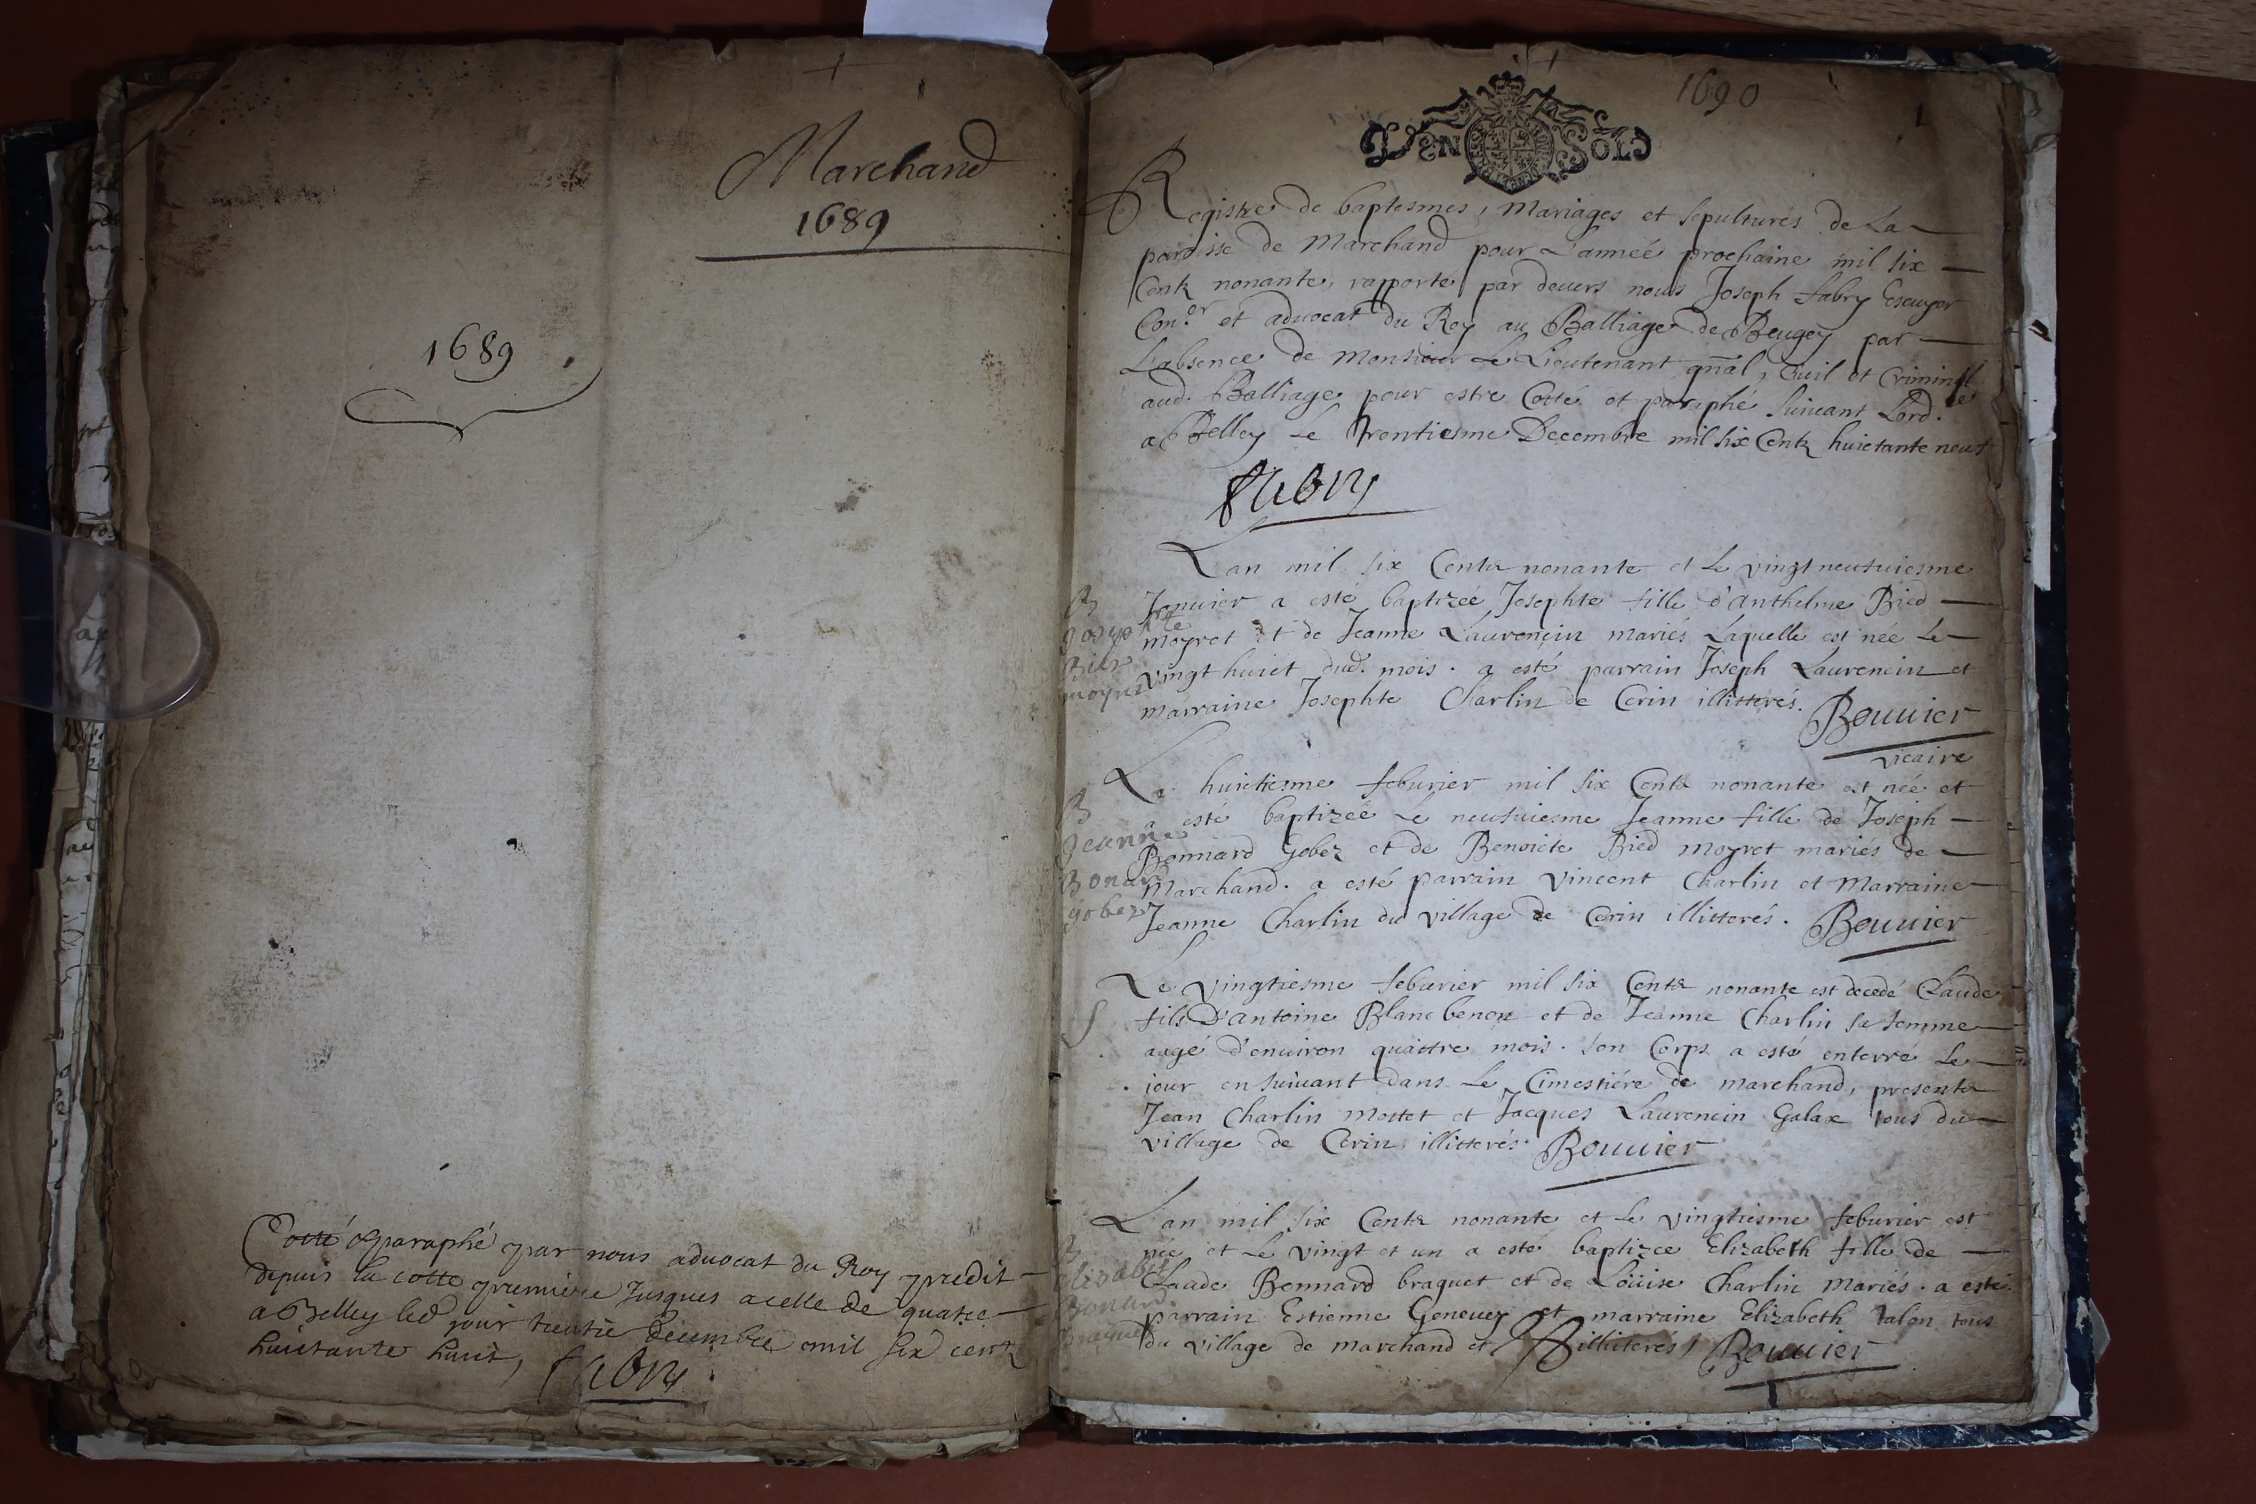 Marchand
1689
1689
Cotté et paraphé par nous advocat du Roy predit
depuis la cotte premiere Jusques a celle de quatre
a Belley led jour trentie decembre mil six centz
huictante huict, fabry
1690
1
DEN SOLS
Registre de baptesmes, Mariages et sepultures de La
paroisse de Marchand pour L'année prochaine mil six
Centz nonante, rapporté par devers nous Joseph fabry Escuyer
Con.er et advocat du Roy au Balliage de Beugey par
L'absence de Monsieur Le Lieutenant gnal, Civil et Criminel
aud. Balliage pour estre Cotté et paraphé suivant Lord.ce
a Belley Le trentiesme Decembre mil six Centz huictante neuf
fabry
L'an mil six Centz nonante et Le vingt neufviesme
Janvier a esté baptizée Josephte fille d'Anthelme Bied
moyret et de Jeanne Laurencin mariés Laquelle est née Le
vingt huict dud. mois. a esté parrain Joseph Laurencin et
marraine Josephte Charlin de Cerin illitterés. Bouuier
vicaire
B
Josephte
Bier
moyret
Le huictiesme feburier mil six Centz nonante est née et
a esté baptizée Le neufviesme Jeanne fille de Joseph
Bonnard Gobez et de Benoicte Bied moyret mariés de
Marchand. a esté parrain Vincent Charlin et Marraine
Jeanne Charlin du village de Cerin illitterés. Bouuier
B
Jeanne
Bonard
gobez
Le vingtiesme feburier mil six Centz nonante est decedé Claude
fils D'antoine Blanc benon et de Jeanne Charlin sa femme
aagé d'environ quattre mois. son Corps a esté enterré Le
jour ensuivant dans Le Cimestiére de marchand, presentz
Jean Charlin Mottet et Jacques Laurencin Galax tous du
village de Cerin illitterés Bouuier
S
L'an mil six Centz nonante et Le vingtiesme feburier est
née et Le vingt et un a esté baptizee Elizabeth fille de
Claude Bonnard braquet et de Loüise Charlin Mariés. a esté
parrain Estienne Genevey et marraine Elizabeth talon tous
du village de marchand et illitterés, Bouuier
B
Elizabet
Bonard
Braquet